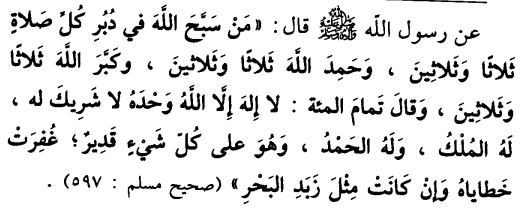 عن رسول الله ﷺ قال: «مَنْ سَبَّحَ اللَّهَ في دُبُرِ كُلِّ صَلاةٍ
ثَلاثًا وَثَلاثِينَ ، وَحَمِدَ اللَّهَ ثَلاثًا وَثَلاثينَ ، وكَبَّرَ اللَّهَ ثَلاثًا
وَثَلاثِينَ ، وَقالَ تَمامَ المئة : لا إلهَ إلَّا اللَّهُ وَحْدَهُ لا شَرِيكَ له ،
لَهُ المُلْكُ ، وَلَهُ الحَمْدُ ، وَهُوَ على كُلِّ شَيْءٍ قَدِيرٌ ؛ غُفِرَتْ
خَطاياهُ وَإنْ كانَتْ مِثْلَ زَبَدِ البَحْرِ» (صحيح مسلم : ٥٩٧) .